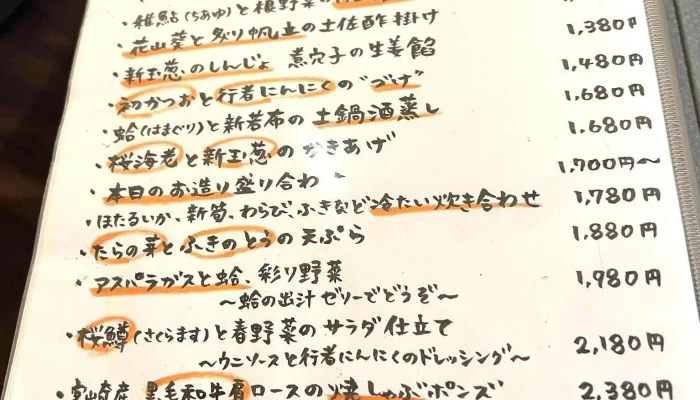 ・稚鮎(ちあゆ)と根野菜の
・花山葵と炙り帆立の土佐酢掛け 1,380円
・新玉葱のしんじょ 煮穴子の生姜餡 1,480円
・初かつおと行者にんにくの“づけ” 1,680円
・蛤(はまぐり)と新若布の土鍋酒蒸し 1,680円
・桜海老と新玉葱のかきあげ
・本日のお造り盛り合わ 1,700円〜
・ほたるいか、新筍、わらび、ふきなど冷たい炊き合わせ 1,780円
・たらの芽とふきのとうの天ぷら 1,880円
・アスパラガスと蛤、彩り野菜 1,980円
〜蛤の出汁ゼリーでどうぞ〜
・桜鱒(さくらます)と春野菜のサラダ仕立て
〜ウニソースと行者にんにくのドレッシング〜 2,180円
・宮崎産 黒毛和牛肩ロースの焼しゃぶポンズ 2,380円